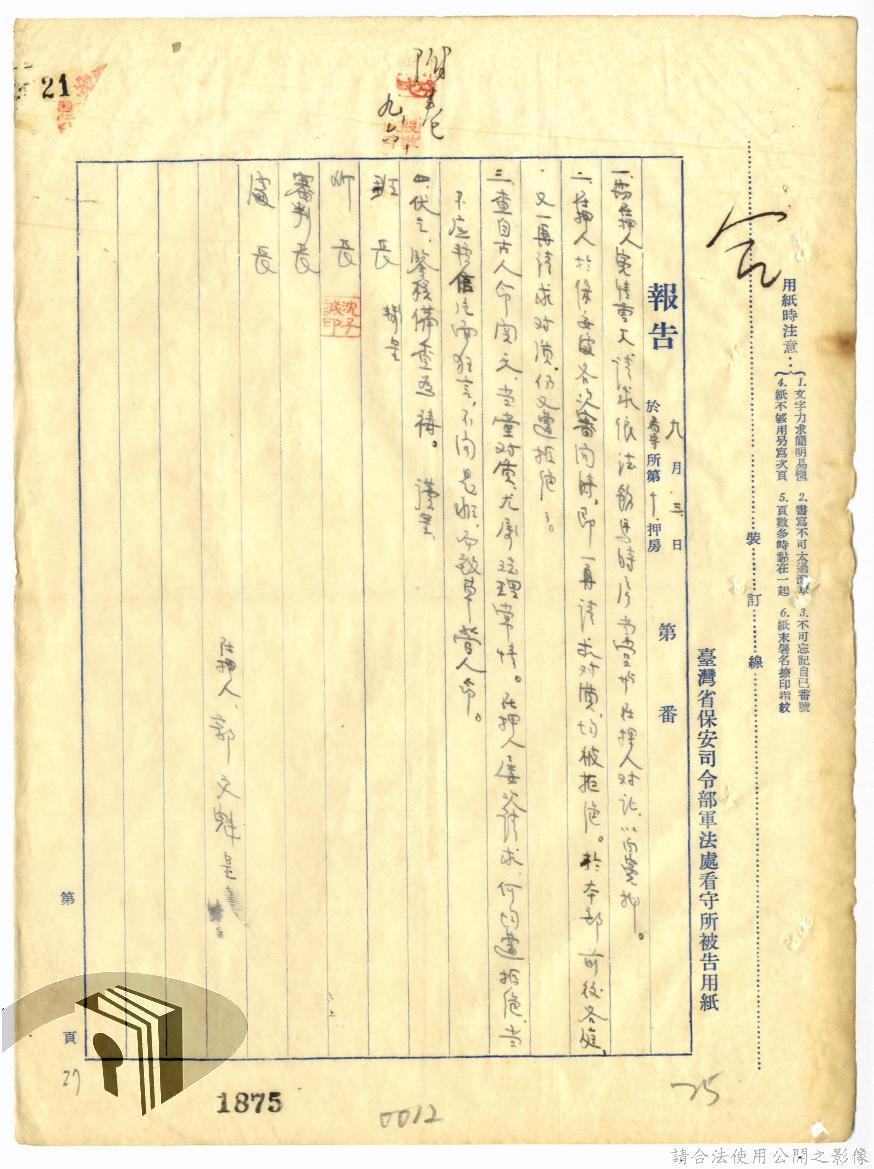 用紙時注意：
1.文字力求簡明易懂
2.書寫不可太過潦草
3.不可忘記自己番號
4.紙不够用另寫次頁
5.頁數多時黏在一起
6.紙末署名捺印指紋
裝訂線
臺灣省保安司令部軍法處看守所被告用紙
報告
九月三日
於 所第十押房
第 番
一、為在押人冤情重大請求依法 在押人对 。
二、在押人於保安處各次審问時，即一再請求对質，均被拒绝。於本部前後各庭，
又一再請求对質，仍又遭拒绝。
三、查自古人命関天，当堂对質，尤屬法理常情。在押人屡次請求，何均遭拒绝，当
不应 信 狂言，不问是非，而致草菅人命。
四、伏乞 鑒核備查為禱。 謹呈
班長 轉呈
所長
審判長
處長
沈子誠印
在押人 郭文魁 呈
第 頁
附卷
九、六、
21
27
1875
0012
75
請合法使用公開之影像